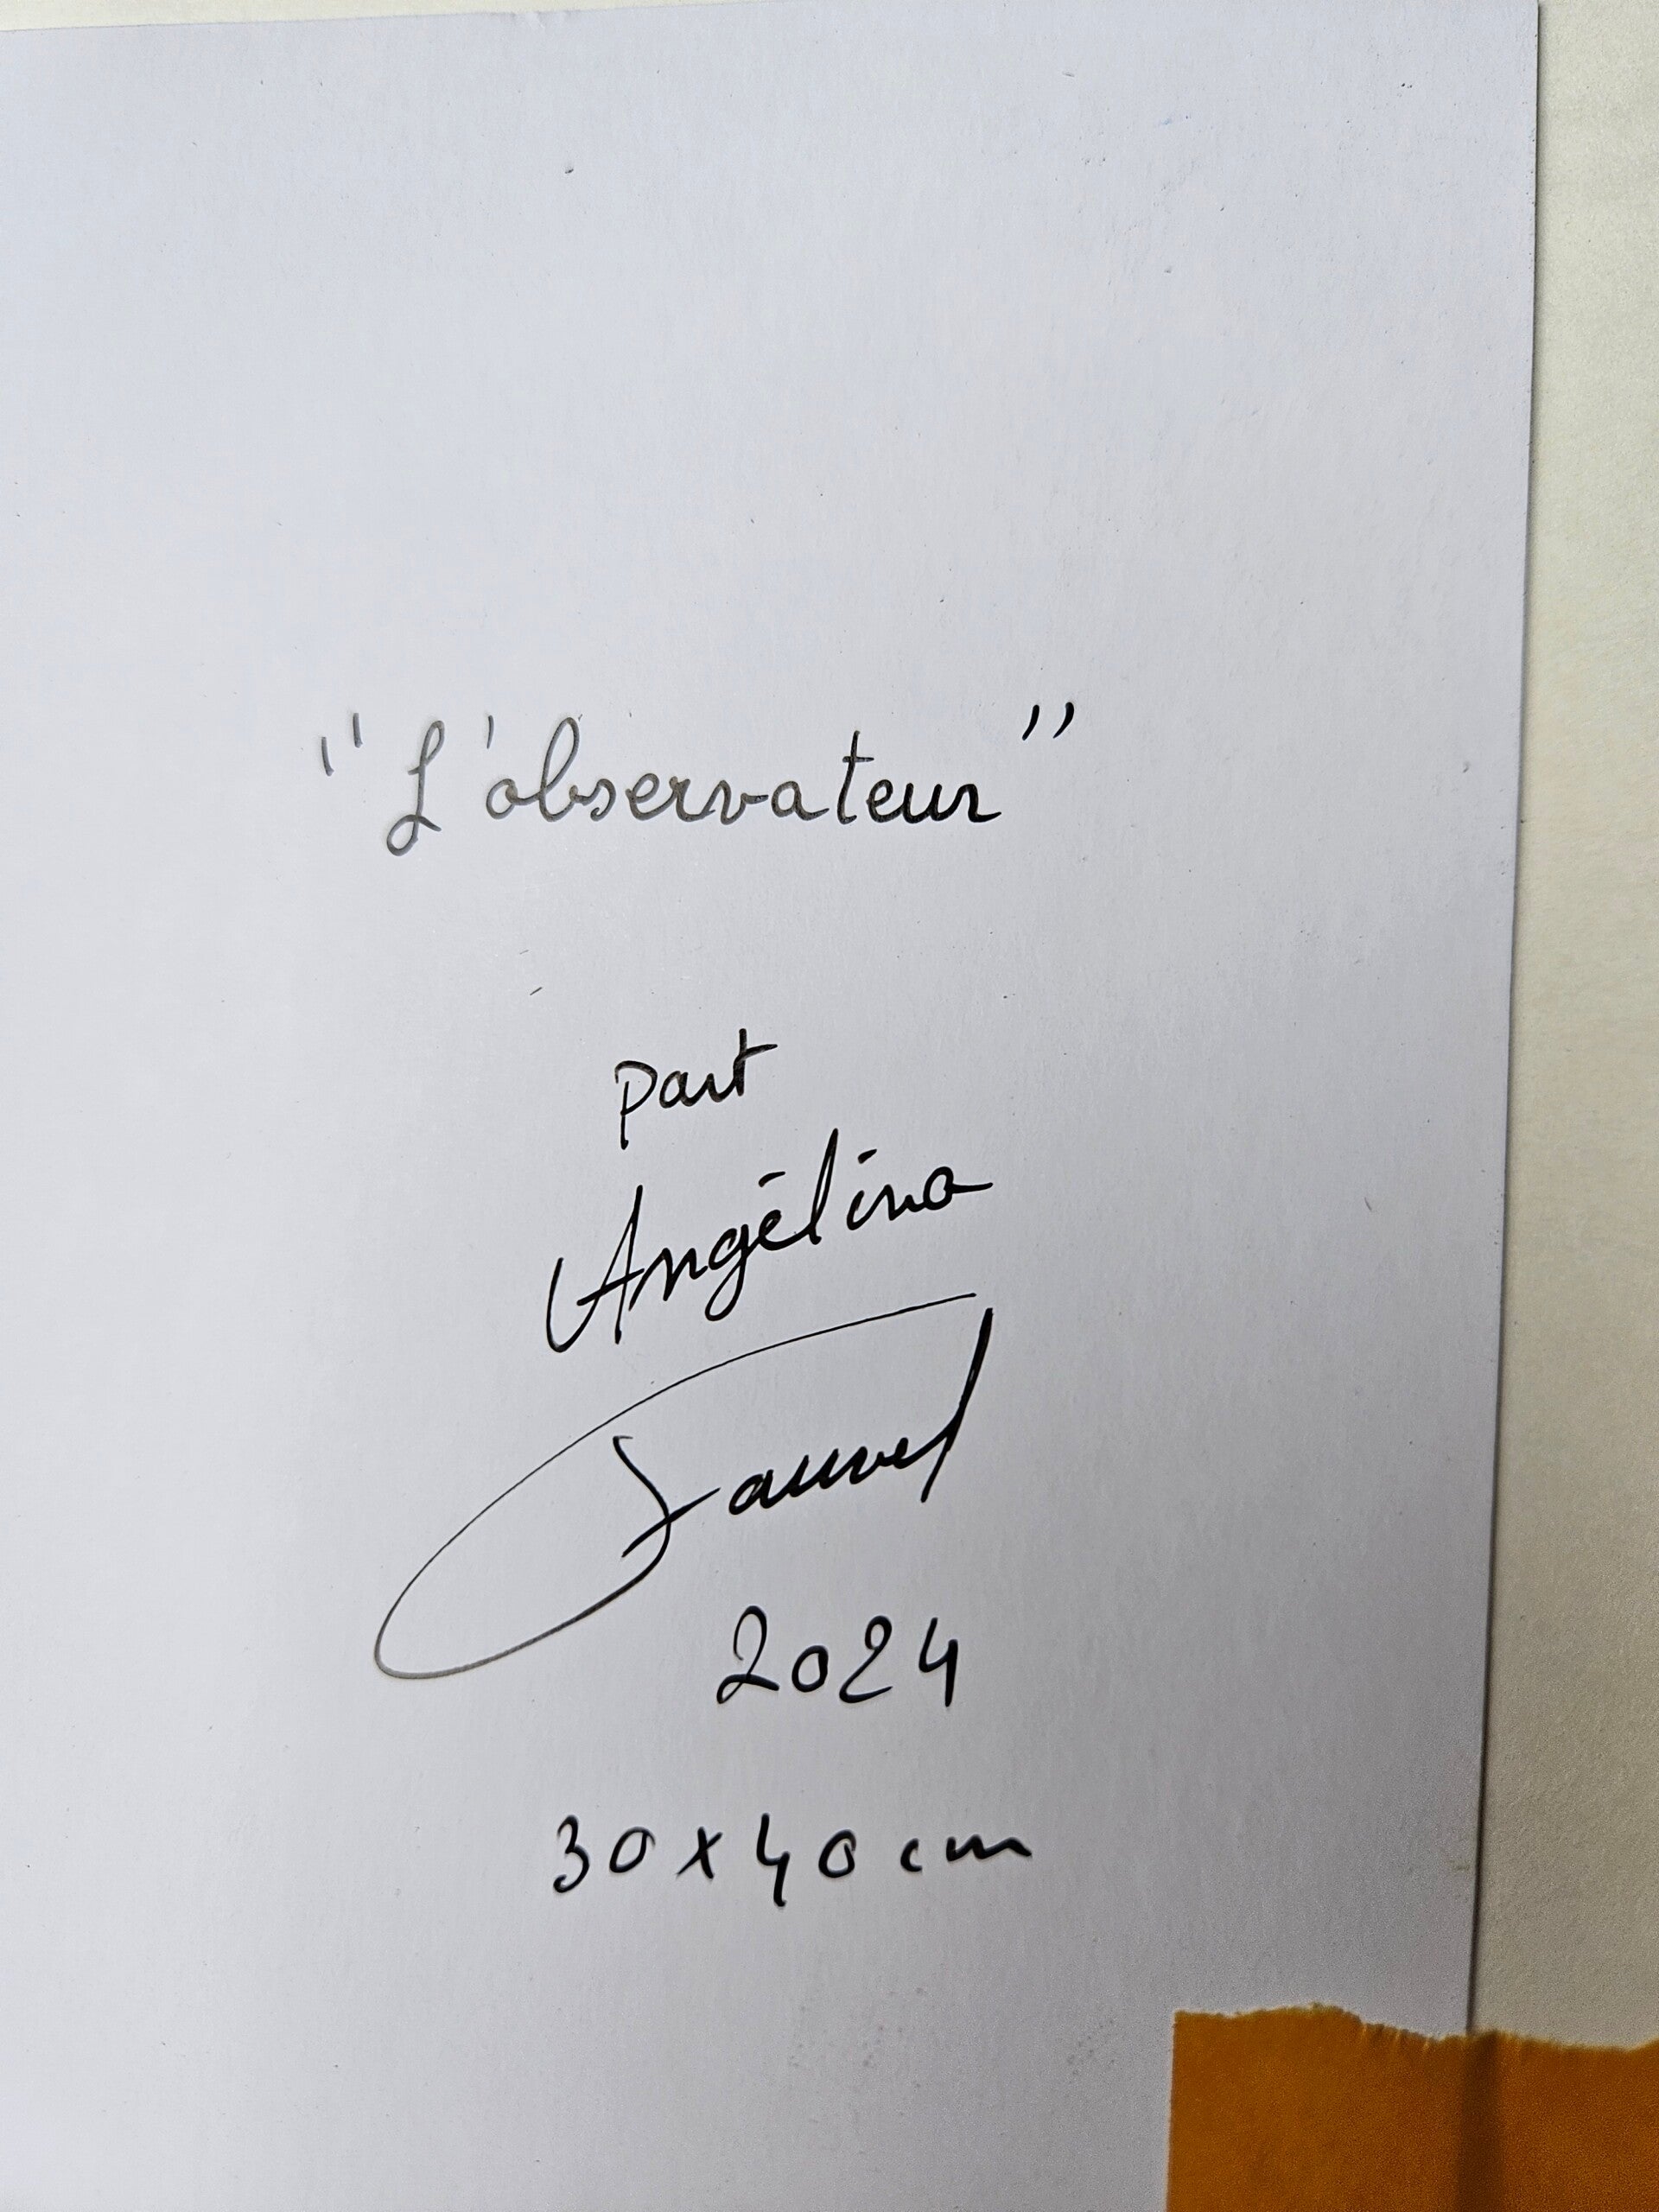 "L'observateur"
part
Angélina
2024
30x40cm